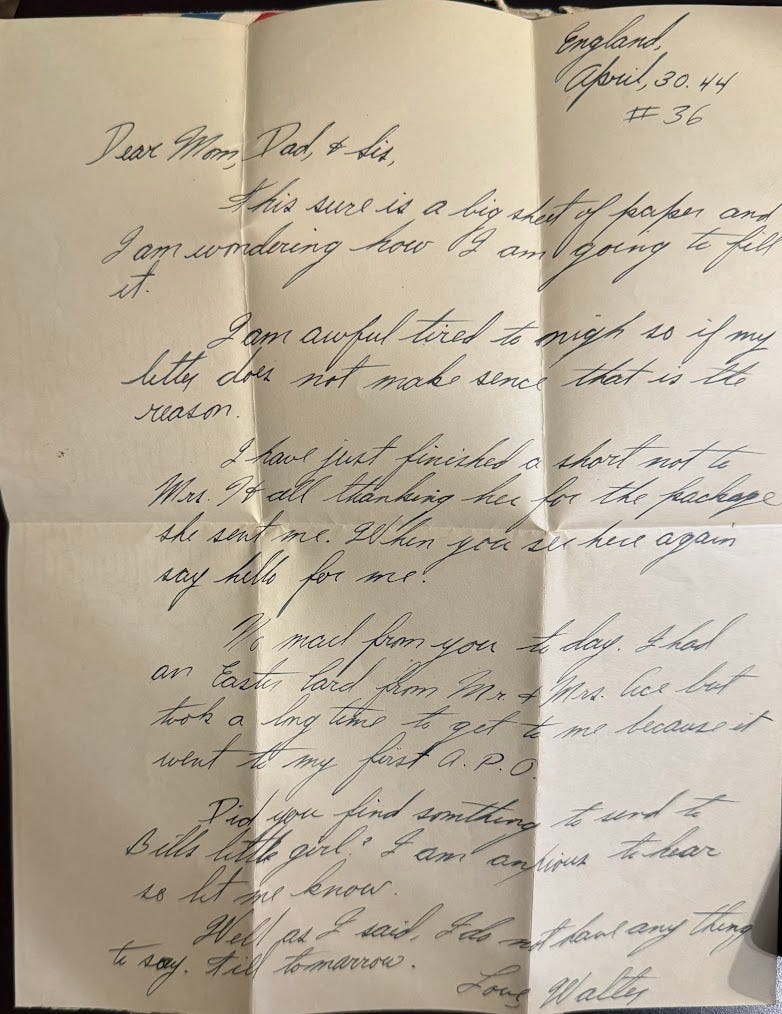 England,
April, 30. 44
# 36
Dear Mom, Dad, & Sis,
This sure is a big sheet of paper and
I am wondering how I am going to fill
it.
I am awful tired to nigh so if my
letter does not make sence that is the
reason.
I have just finished a short not to
Mrs. thanking her for the package
she sent me. When you see here again
say hello for me.
No mail from you to day. I had
an Easter Card from Mr. & Mrs. but
took a long time to get to me because it
went to my first A. P. O.
Did you find somthing to send to
Bills little girl? I am anxious to hear
so let me know.
Well as I said, I do not have any thing
to say. till tomarrow.
Love, Walter